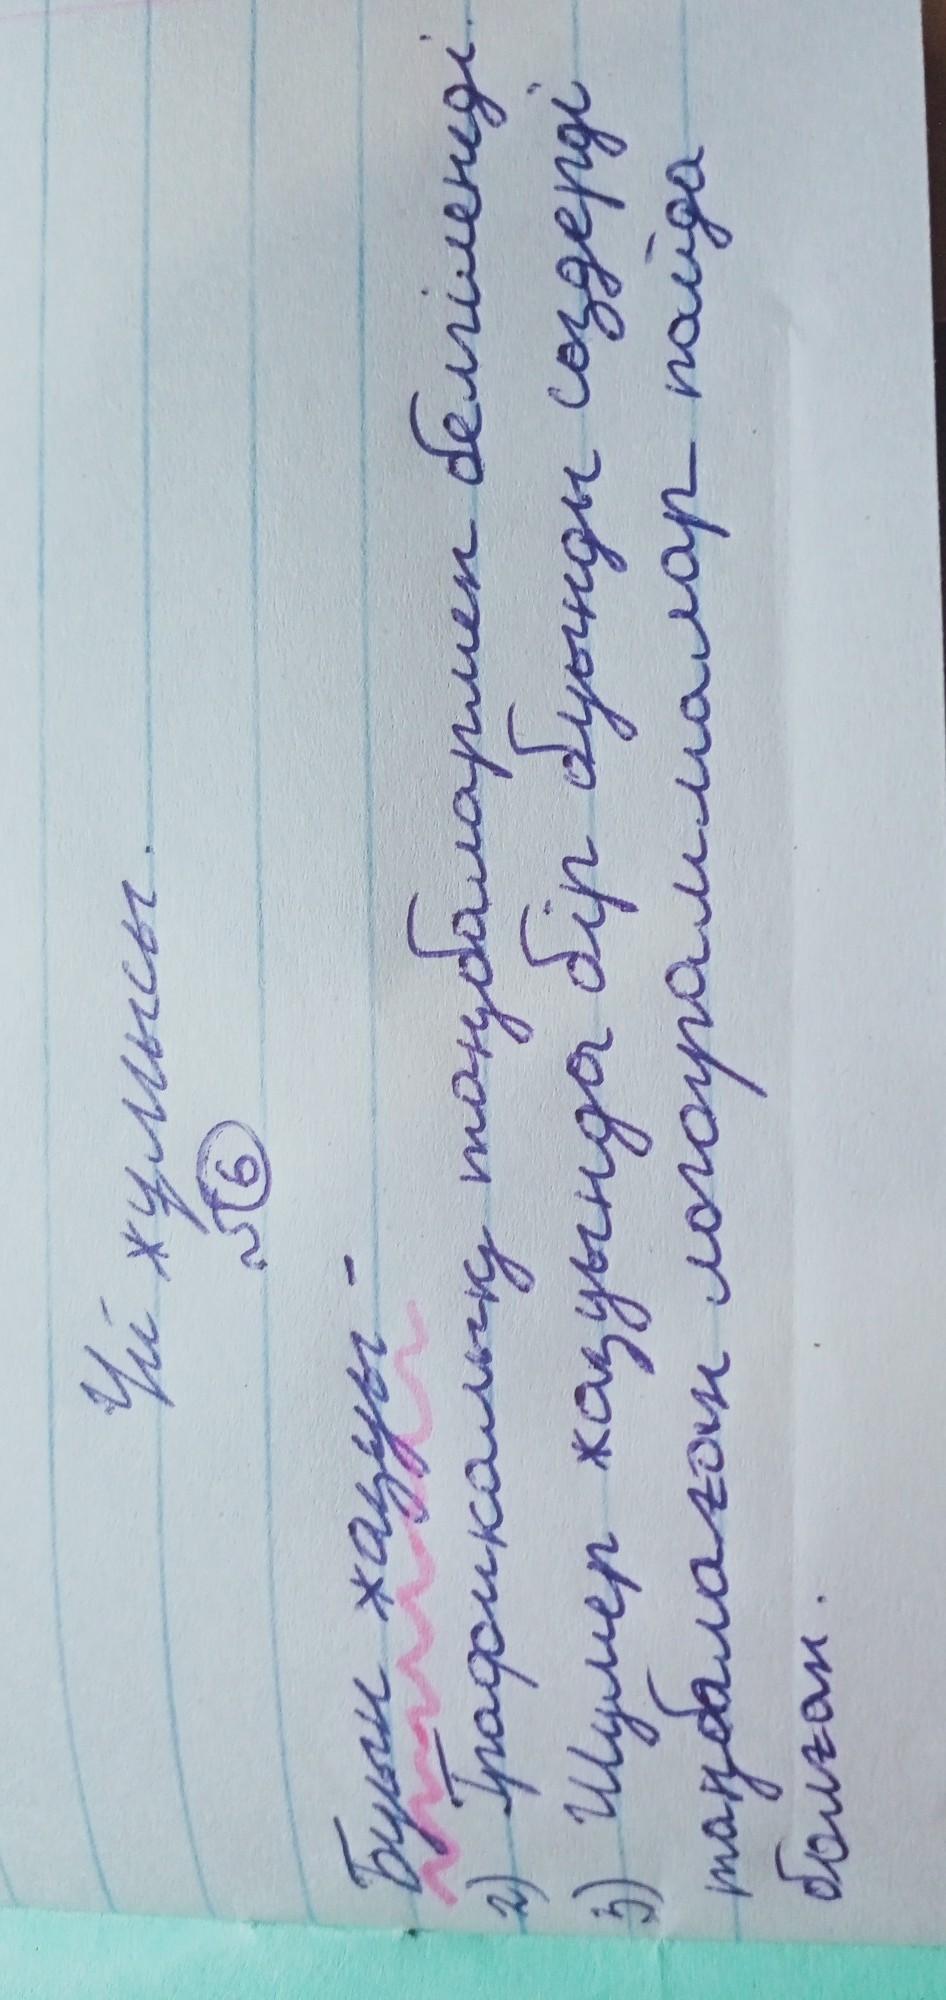 Үй жұмысы.
№6
Буын жазуы -
2) Графикалық таңбалармен белгіленді.
3) Шумер жазуында бір буынды сөздерді
таңбалаған логограммалар пайда
болған.